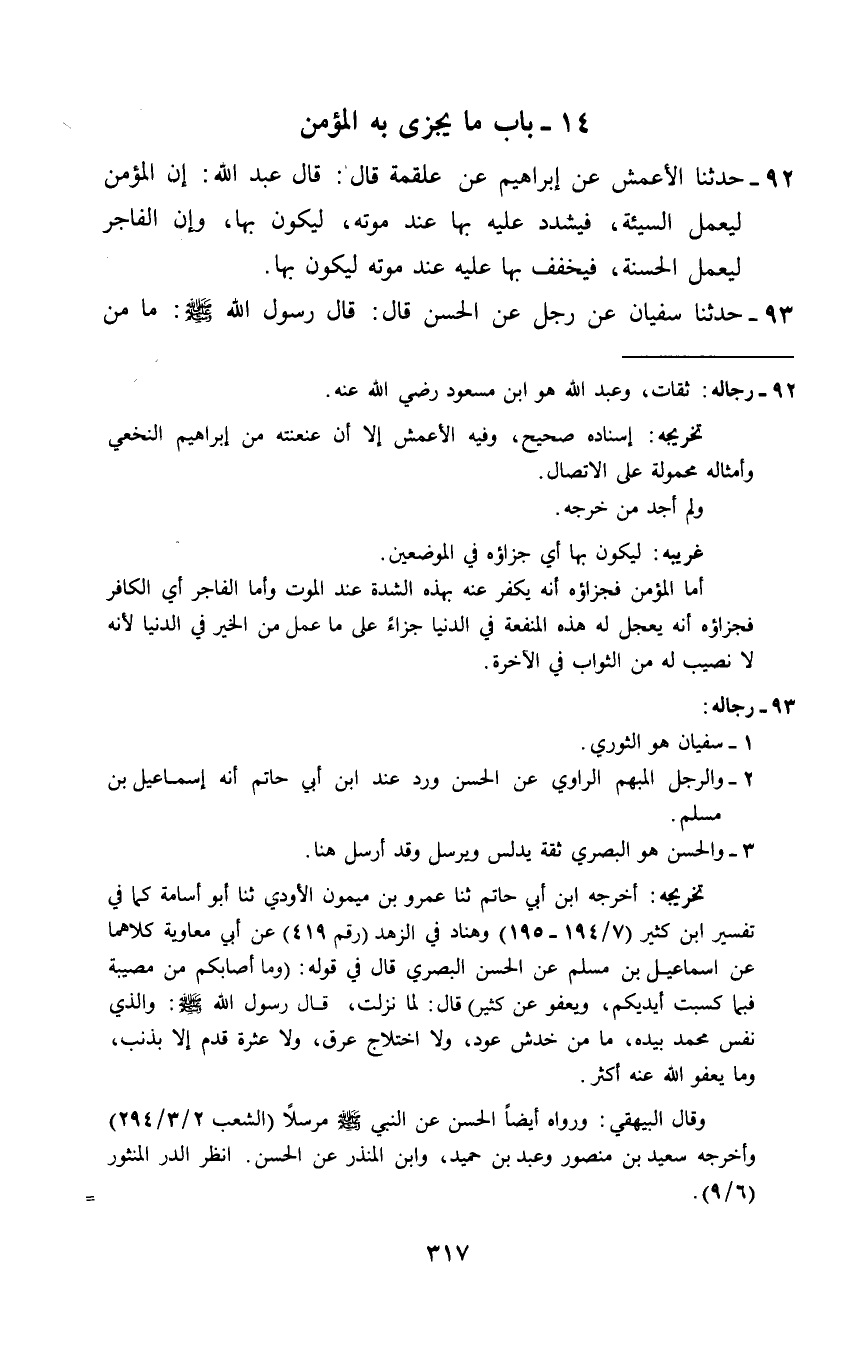 ١٤ - باب ما يجزى به المؤمن
٩٢ - حدثنا الأعمش عن إبراهيم عن علقمة قال: قال عبد الله: إن المؤمن
ليعمل السيئة، فيشدد عليه بها عند موته، ليكون بها، وإن الفاجر
ليعمل الحسنة، فيخفف بها عليه عند موته ليكون بها.
٩٣ - حدثنا سفيان عن رجل عن الحسن قال: قال رسول الله ﷺ: ما من
٩٢ - رجاله: ثقات، وعبد الله هو ابن مسعود رضي الله عنه.
تخريجه: إسناده صحيح، وفيه الأعمش إلا أن عنعنته من إبراهيم النخعي
وأمثاله محمولة على الاتصال.
ولم أجد من خرجه.
غريبه: ليكون بها أي جزاؤه في الموضعين.
أما المؤمن فجزاؤه أنه يكفر عنه بهذه الشدة عند الموت وأما الفاجر أي الكافر
فجزاؤه أنه يعجل له هذه المنفعة في الدنيا جزاءً على ما عمل من الخير في الدنيا لأنه
لا نصيب له من الثواب في الآخرة.
٩٣ - رجاله:
١ - سفيان هو الثوري.
٢ - والرجل المبهم الراوي عن الحسن ورد عند ابن أبي حاتم أنه إسماعيل بن
مسلم.
٣ - والحسن هو البصري ثقة يدلس ويرسل وقد أرسل هنا.
تخريجه: أخرجه ابن أبي حاتم ثنا عمرو بن ميمون الأودي ثنا أبو أسامة كما في
تفسير ابن كثير (١٩٤/٧ - ١٩٥) وهناد في الزهد (رقم ٤١٩) عن أبي معاوية كلاهما
عن اسماعيل بن مسلم عن الحسن البصري قال في قوله: (وما أصابكم من مصيبة
فبما كسبت أيديكم، ويعفو عن كثير) قال: لما نزلت، قال رسول الله ﷺ: والذي
نفس محمد بيده، ما من خدش عود، ولا اختلاج عرق، ولا عثرة قدم إلا بذنب،
وما يعفو الله عنه أكثر.
وقال البيهقي: ورواه أيضاً الحسن عن النبي ﷺ مرسلًا (الشعب ٢٩٤/٣/٢)
وأخرجه سعيد بن منصور وعبد بن حميد، وابن المنذر عن الحسن. انظر الدر المنثور
(٩/٦).
=
٣١٧